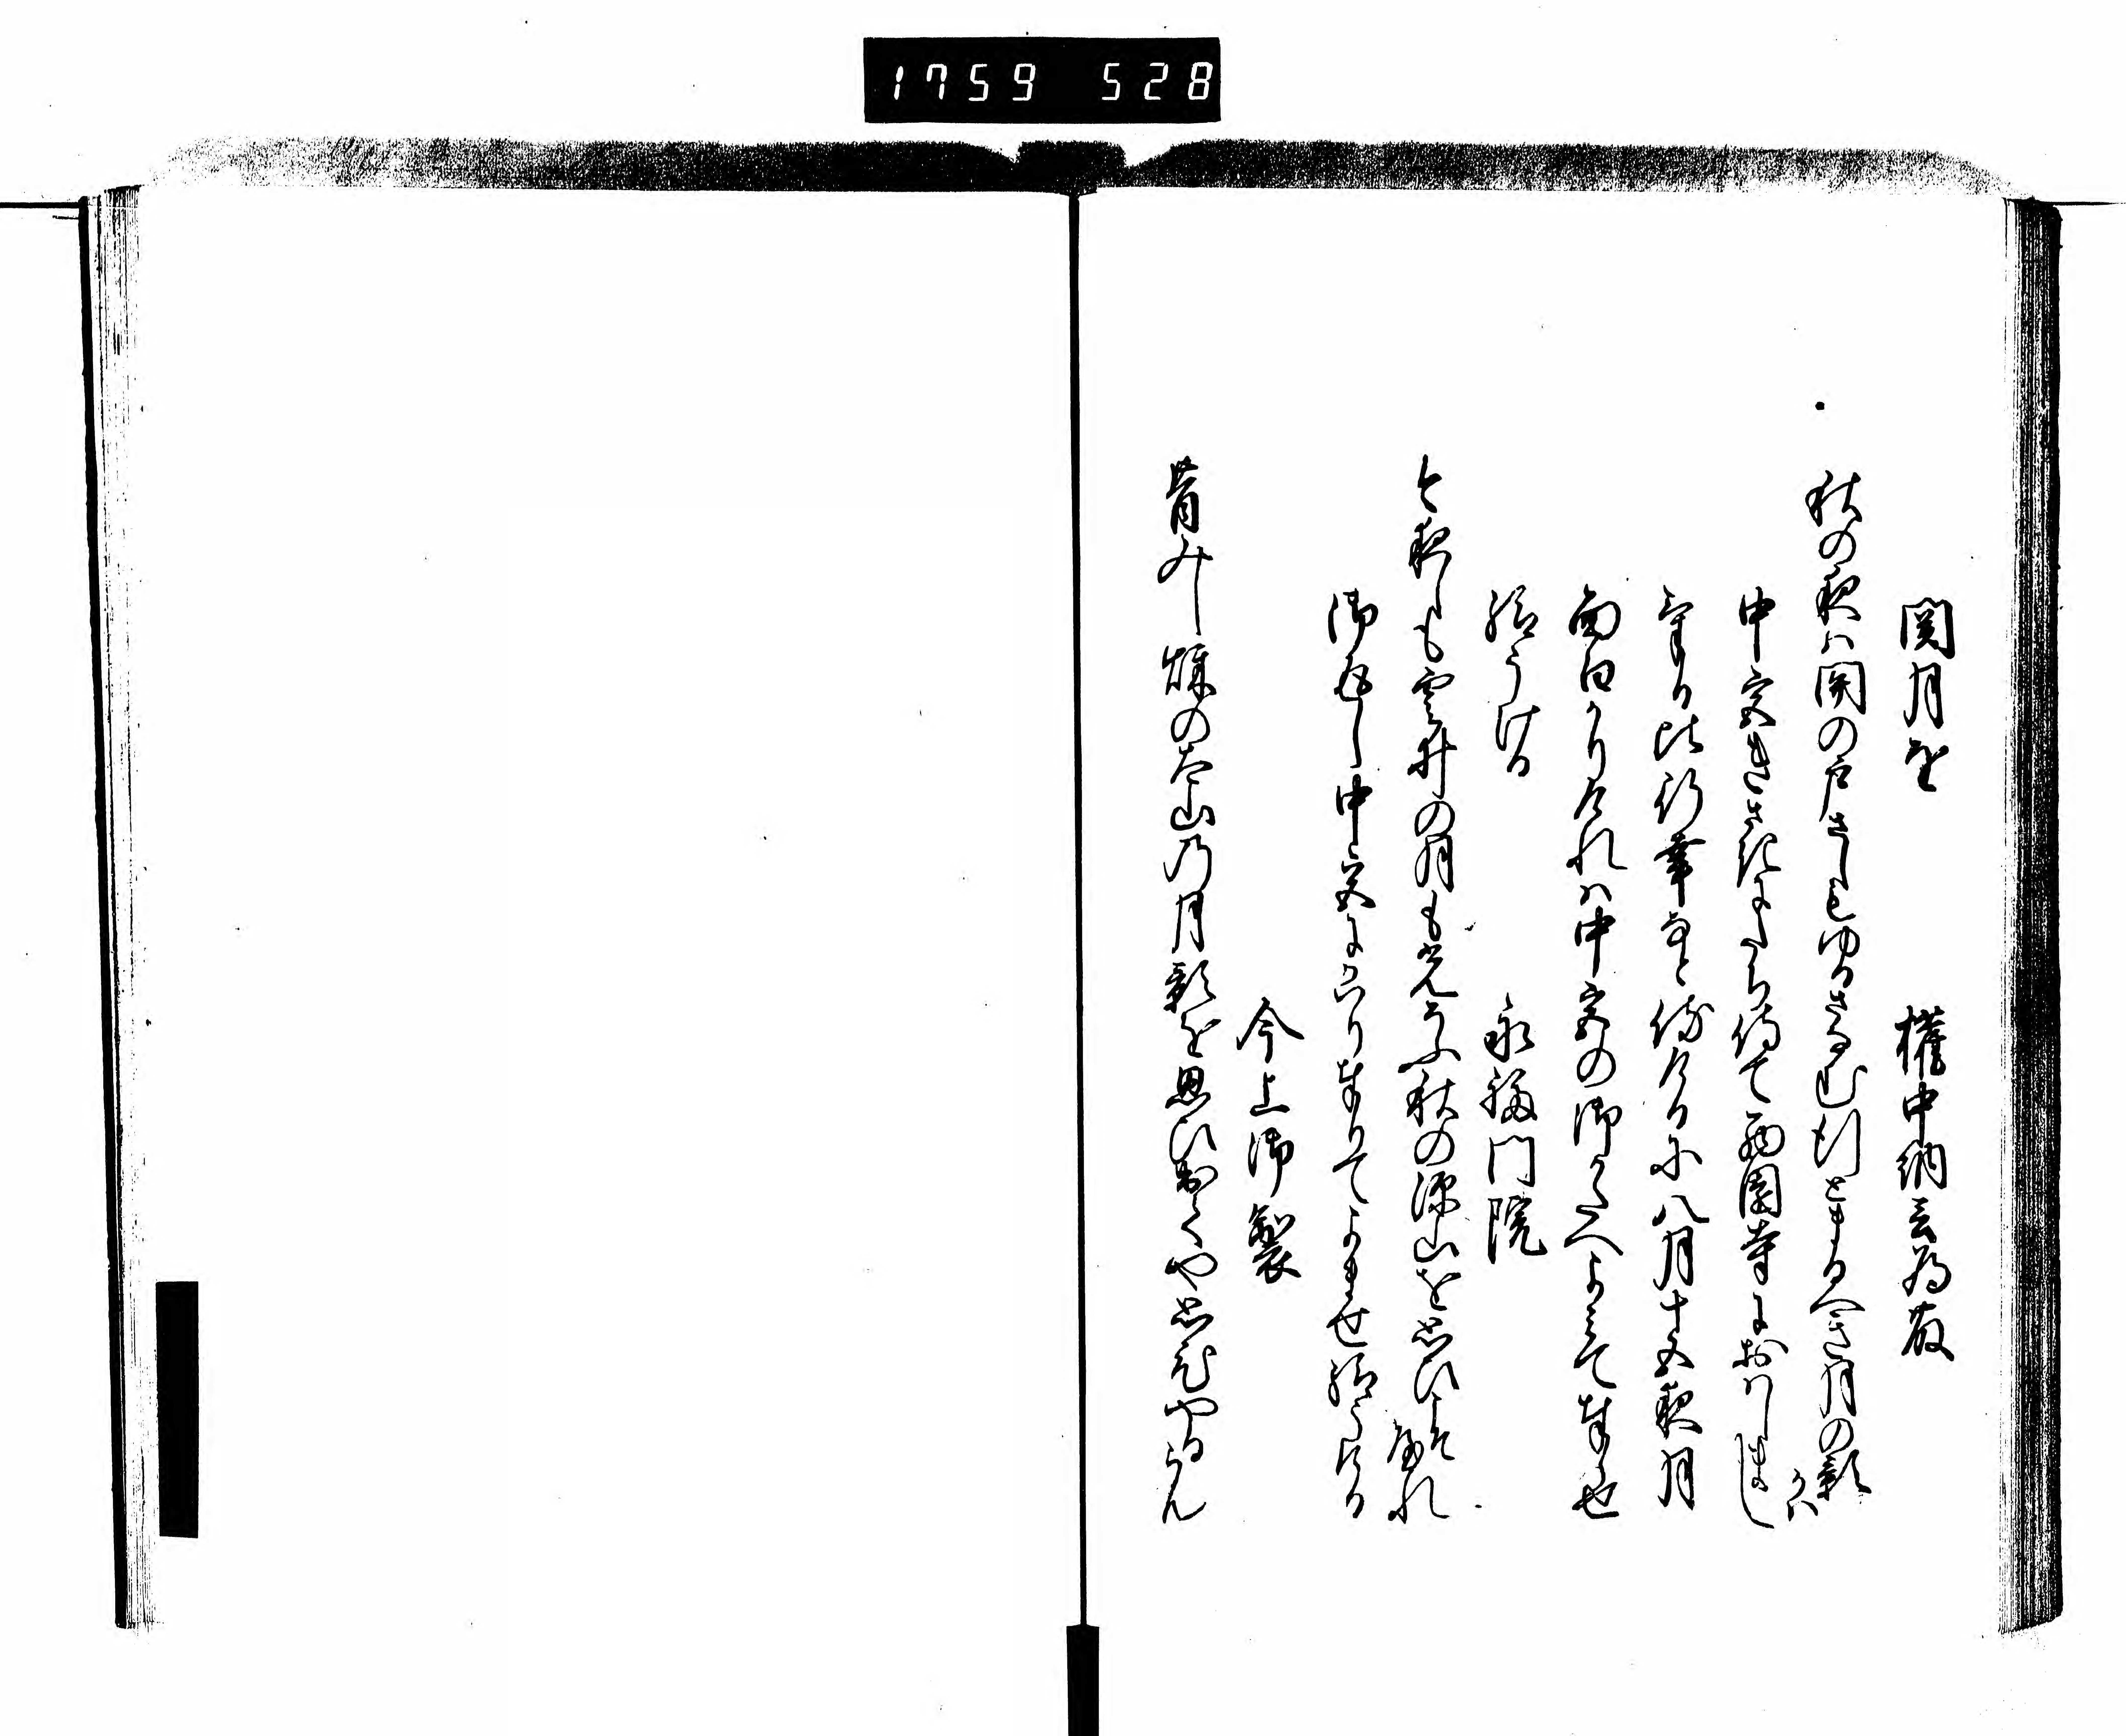 1759 528
関月を　権中納言為藤
秋の夜ハ関の戸さしもゆるさなむ行とまるへき月の影かハ
中宮きさきにたち給て西園寺におハしまし
ける比行幸なと侍けるに八月十五夜月
面白かりけれハ中宮の御かたへよみて奉せ
給うける　永福門院
今夜しも雲井の月も光そふ秋の深山を思ひこそやれ
御返し中宮にかハり奉りてよませ給うける
今上御製
昔みし穐の太山乃月影を思ひ出てや思ひやるらん